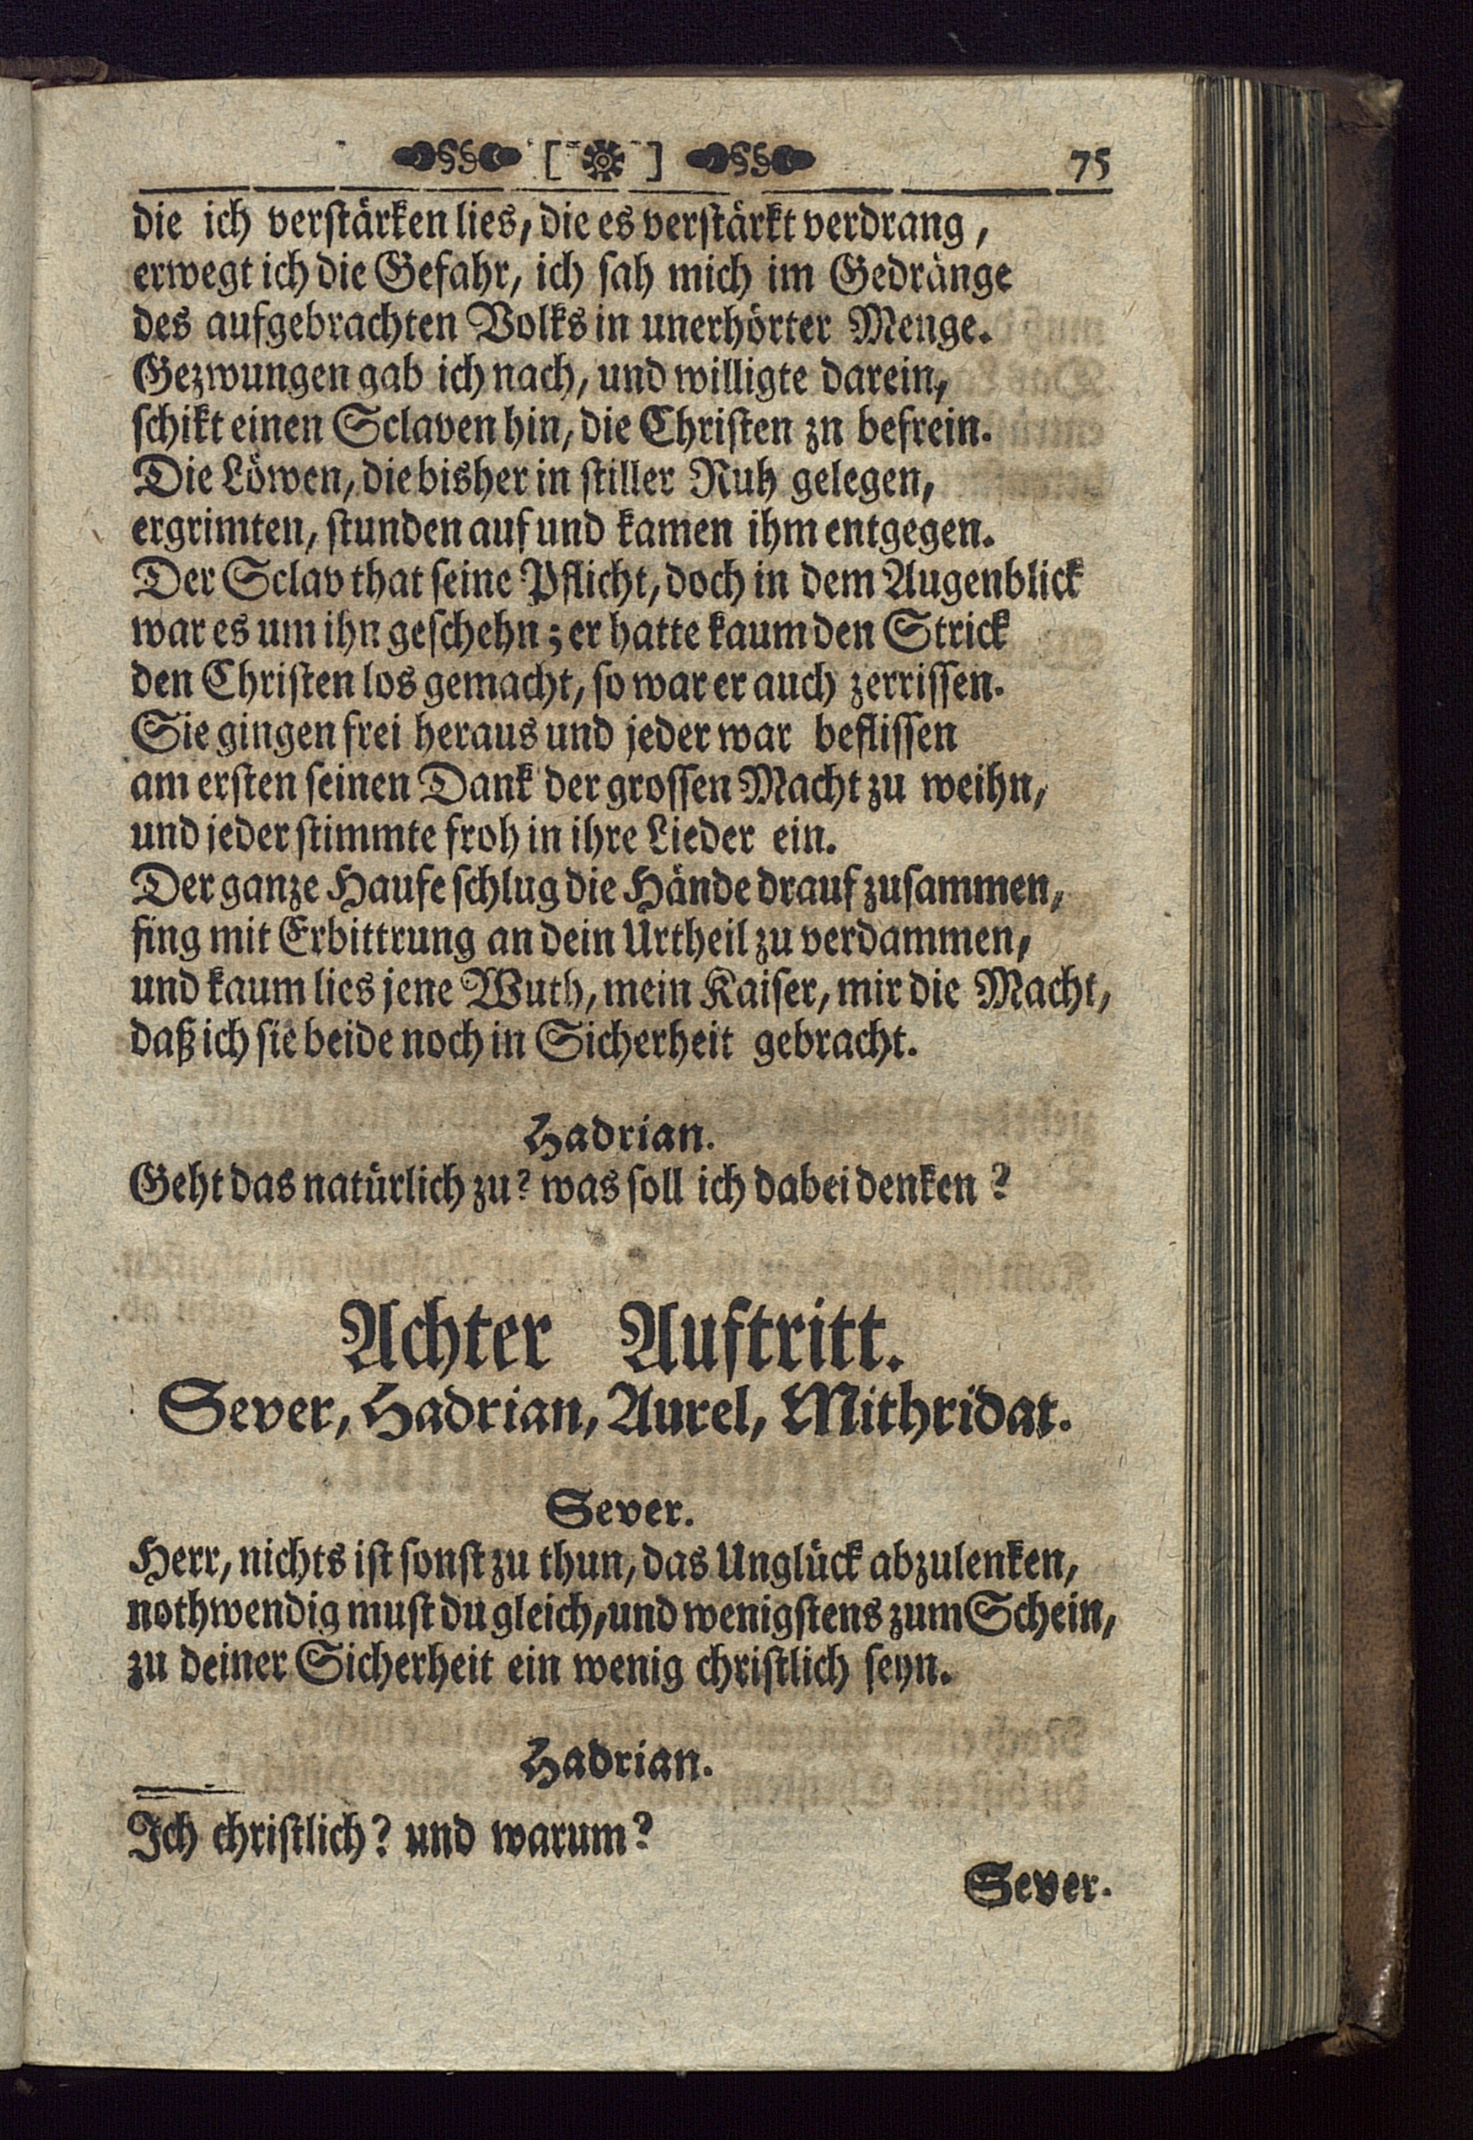 75
die ich verstärken lies, die es verstärkt verdrang,
erwegt ich die Gefahr, ich sah mich im Gedränge
des aufgebrachten Volks in unerhörter Menge.
Gezwungen gab ich nach, und willigte darein,
schikt einen Sclaven hin, die Christen zn befrein.
Die Löwen, die bisher in stiller Ruh gelegen,
ergrimten, stunden auf und kamen ihm entgegen.
Der Sclav that seine Pflicht, doch in dem Augenblick
war es um ihn geschehn; er hatte kaum den Strick
den Christen los gemacht, so war er auch zerrissen.
Sie gingen frei heraus und jeder war beflissen
am ersten seinen Dank der grossen Macht zu weihn,
und jeder stimmte froh in ihre Lieder ein.
Der ganze Haufe schlug die Hände drauf zusammen,
fing mit Erbittrung an dein Urtheil zu verdammen,
und kaum lies jene Wuth, mein Kaiser, mir die Macht,
daß ich sie beide noch in Sicherheit gebracht.
Hadrian.
Geht das natürlich zu? was soll ich dabei denken?
Achter Auftritt.
Sever, Hadrian, Aurel, Mithridat.
Sever.
Herr, nichts ist sonst zu thun, das Unglück abzulenken,
nothwendig must du gleich, und wenigstens zum Schein,
zu deiner Sicherheit ein wenig christlich seyn.
Hadrian.
Ich christlich? und warum?
Sever.